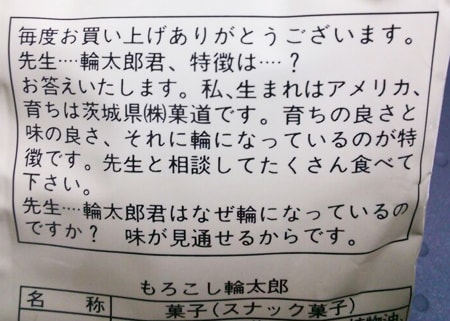 毎度お買い上げありがとうございます。
先生‥‥輪太郎君、特徴は‥‥?
お答えいたします。私、生まれはアメリカ、
育ちは茨城県㈱菓道です。育ちの良さと
味の良さ、それに輪になっているのが特
徴です。先生と相談してたくさん食べて
下さい。
先生‥‥輪太郎君はなぜ輪になっているの
ですか? 味が見通せるからです。
もろこし輪太郎
名 称 菓子(スナック菓子)
植物油、